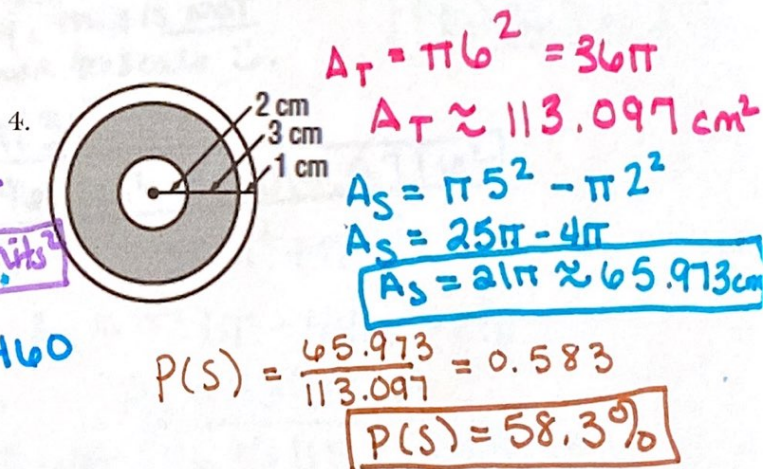 4.
2 cm
3 cm
1 cm
A_T = π6² = 36π
A_T ≈ 113.097 cm²
A_S = π5² - π2²
A_S = 25π - 4π
A_S = 21π ≈ 65.973 cm
P(S) = 65.973 / 113.097 = 0.583
P(S) = 58.3%